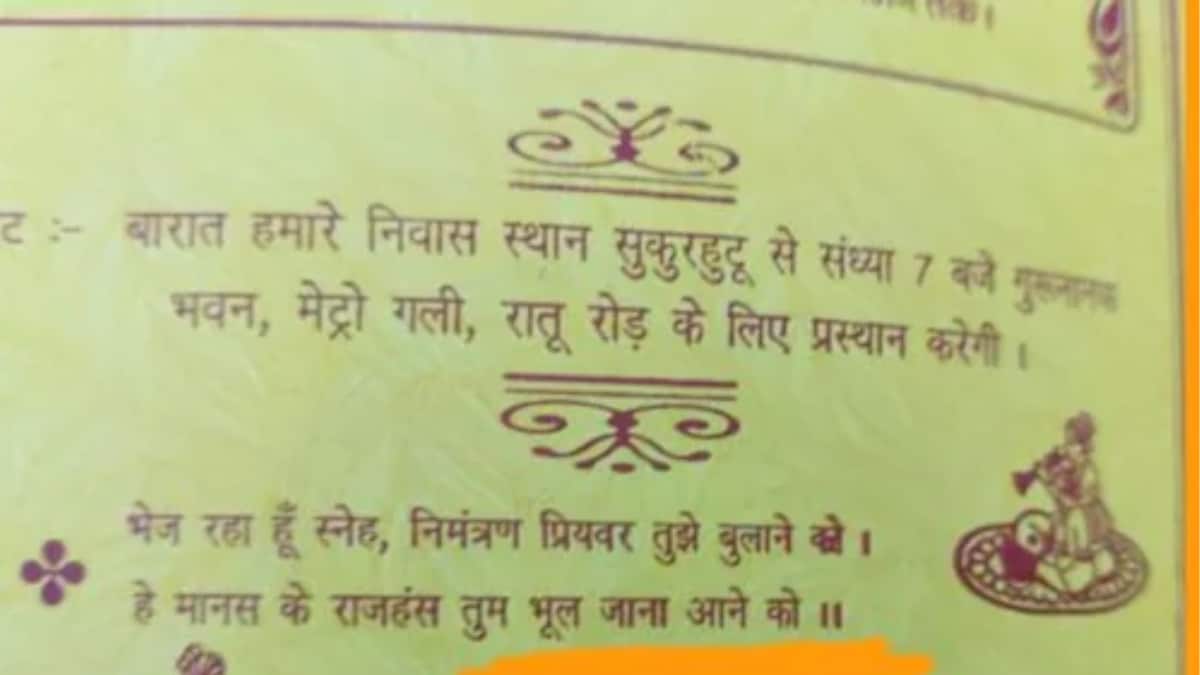 ट :- बारात हमारे निवास स्थान सुकुरहुटू से संध्या 7 बजे गुरूनानक
भवन, मेट्रो गली, रातू रोड़ के लिए प्रस्थान करेगी ।
भेज रहा हूँ स्नेह, निमंत्रण प्रियवर तुझे बुलाने को ।
हे मानस के राजहंस तुम भूल जाना आने को ॥